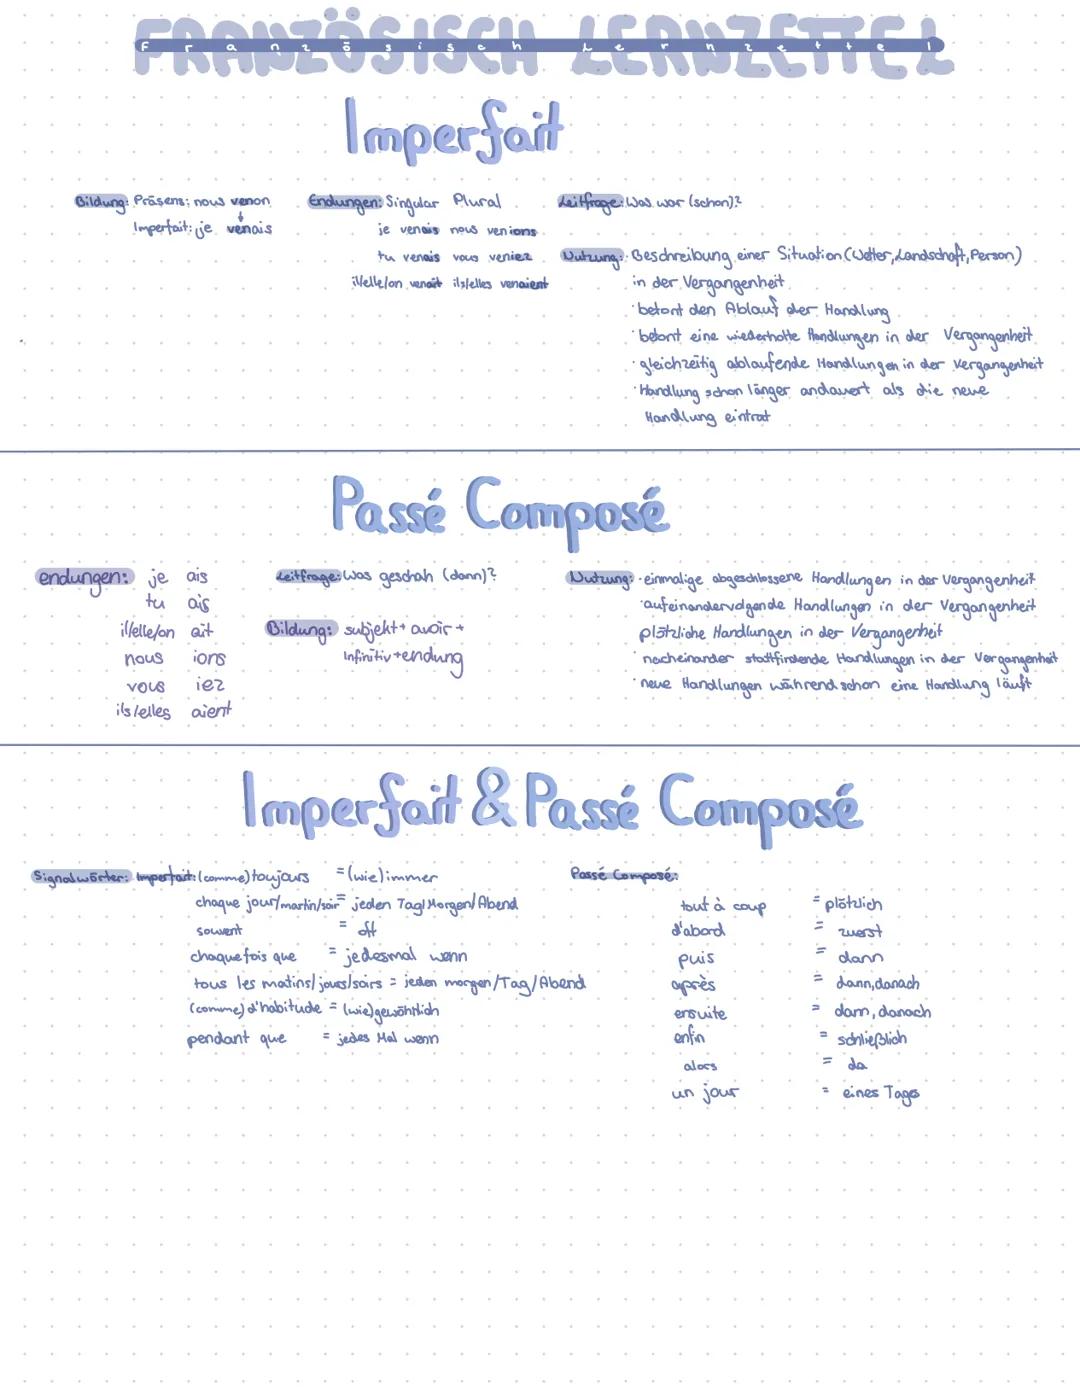 FRANZÖSISCH LERNZETTEL
Französisch Lernzettel
Imperfait
Bildung: Präsens: nous venon
Imperfait: je venais
Endungen: Singular Plural
je venais nous venions
tu venais vous veniez
il/elle/on venait ils/elles venaient
Leitfrage: Was war (schon)?
Nutzung: · Beschreibung einer Situation (Wetter, Landschaft, Person)
in der Vergangenheit
· betont den Ablauf der Handlung
· betont eine wiederholte Handlungen in der Vergangenheit
· gleichzeitig ablaufende Handlungen in der Vergangenheit
· Handlung schon länger andauert als die neue
Handlung eintrat
Passé Composé
endungen: je ais
tu ais
il/elle/on ait
nous ions
vous iez
ils/elles aient
Leitfrage: Was geschah (dann)?
Bildung: subjekt + avoir +
Infinitiv + endung
Nutzung: · einmalige abgeschlossene Handlungen in der Vergangenheit
· aufeinandervolgende Handlungen in der Vergangenheit
plötzliche Handlungen in der Vergangenheit
· nacheinander stattfindende Handlungen in der Vergangenheit
· neue Handlungen während schon eine Handlung läuft
Imperfait & Passé Composé
Signalwörter: Imperfait: (comme) toujours = (wie) immer
chaque jour/martin/soir = jeden Tag/Morgen/Abend
souvent = oft
chaque fois que = jedesmal wenn
tous les matins/jours/soirs = jeden morgen/Tag/Abend
(comme) d'habitude = (wie) gewöhnlich
pendant que = jedes Mal wenn
Passé Composé:
tout à coup = plötzlich
d'abord = zuerst
puis = dann
après = dann, danach
ensuite = dann, danach
enfin = schließlich
alors = da
un jour = eines Tages